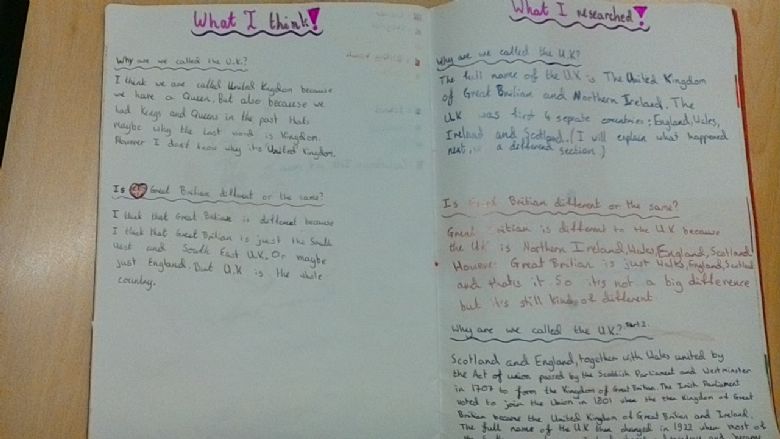 What I think!
Why are we called the U.K?
I think we are called United Kingdom because
we have a Queen. But also because we
had Kings and Queens in the past thats
maybe why the last word is Kingdom.
However I don't know why its United Kingdom.
Is Great Britian different or the same?
I think that Great Britian is different because
I think that Great Britian is just the South
West and South East U.K. Or maybe
just England. But U.K is the whole
country.
What I researched!
Why are we called the U.K?
The full name of the U.K is The United Kingdom
of Great Britian and Northern Ireland. The
U.K was first 4 seprate countries; England, Wales,
Ireland and Scotland. (I will explain what happened
next in a different section.)
Is Great Britian different or the same?
Great Britian is different to the U.K because
the UK is Northern Ireland, Wales, England, Scotland
However Great Britian is just Wales, England, Scotland
and thats it. So its not a big difference
but it's still kind of different
Why are we called the U.K? Part 2.
Scotland and England, together with Wales united by
the Act of union passed by the Scottish Parliament and Westminster
in 1707 to form the Kingdom of Great Britian. The Irish Parliament
voted to join the Union in 1801 when the then Kingdom of Great
Britian became the United Kingdom of Great Britian and Ireland.
The full name of the U.K then changed in 1922 when most of